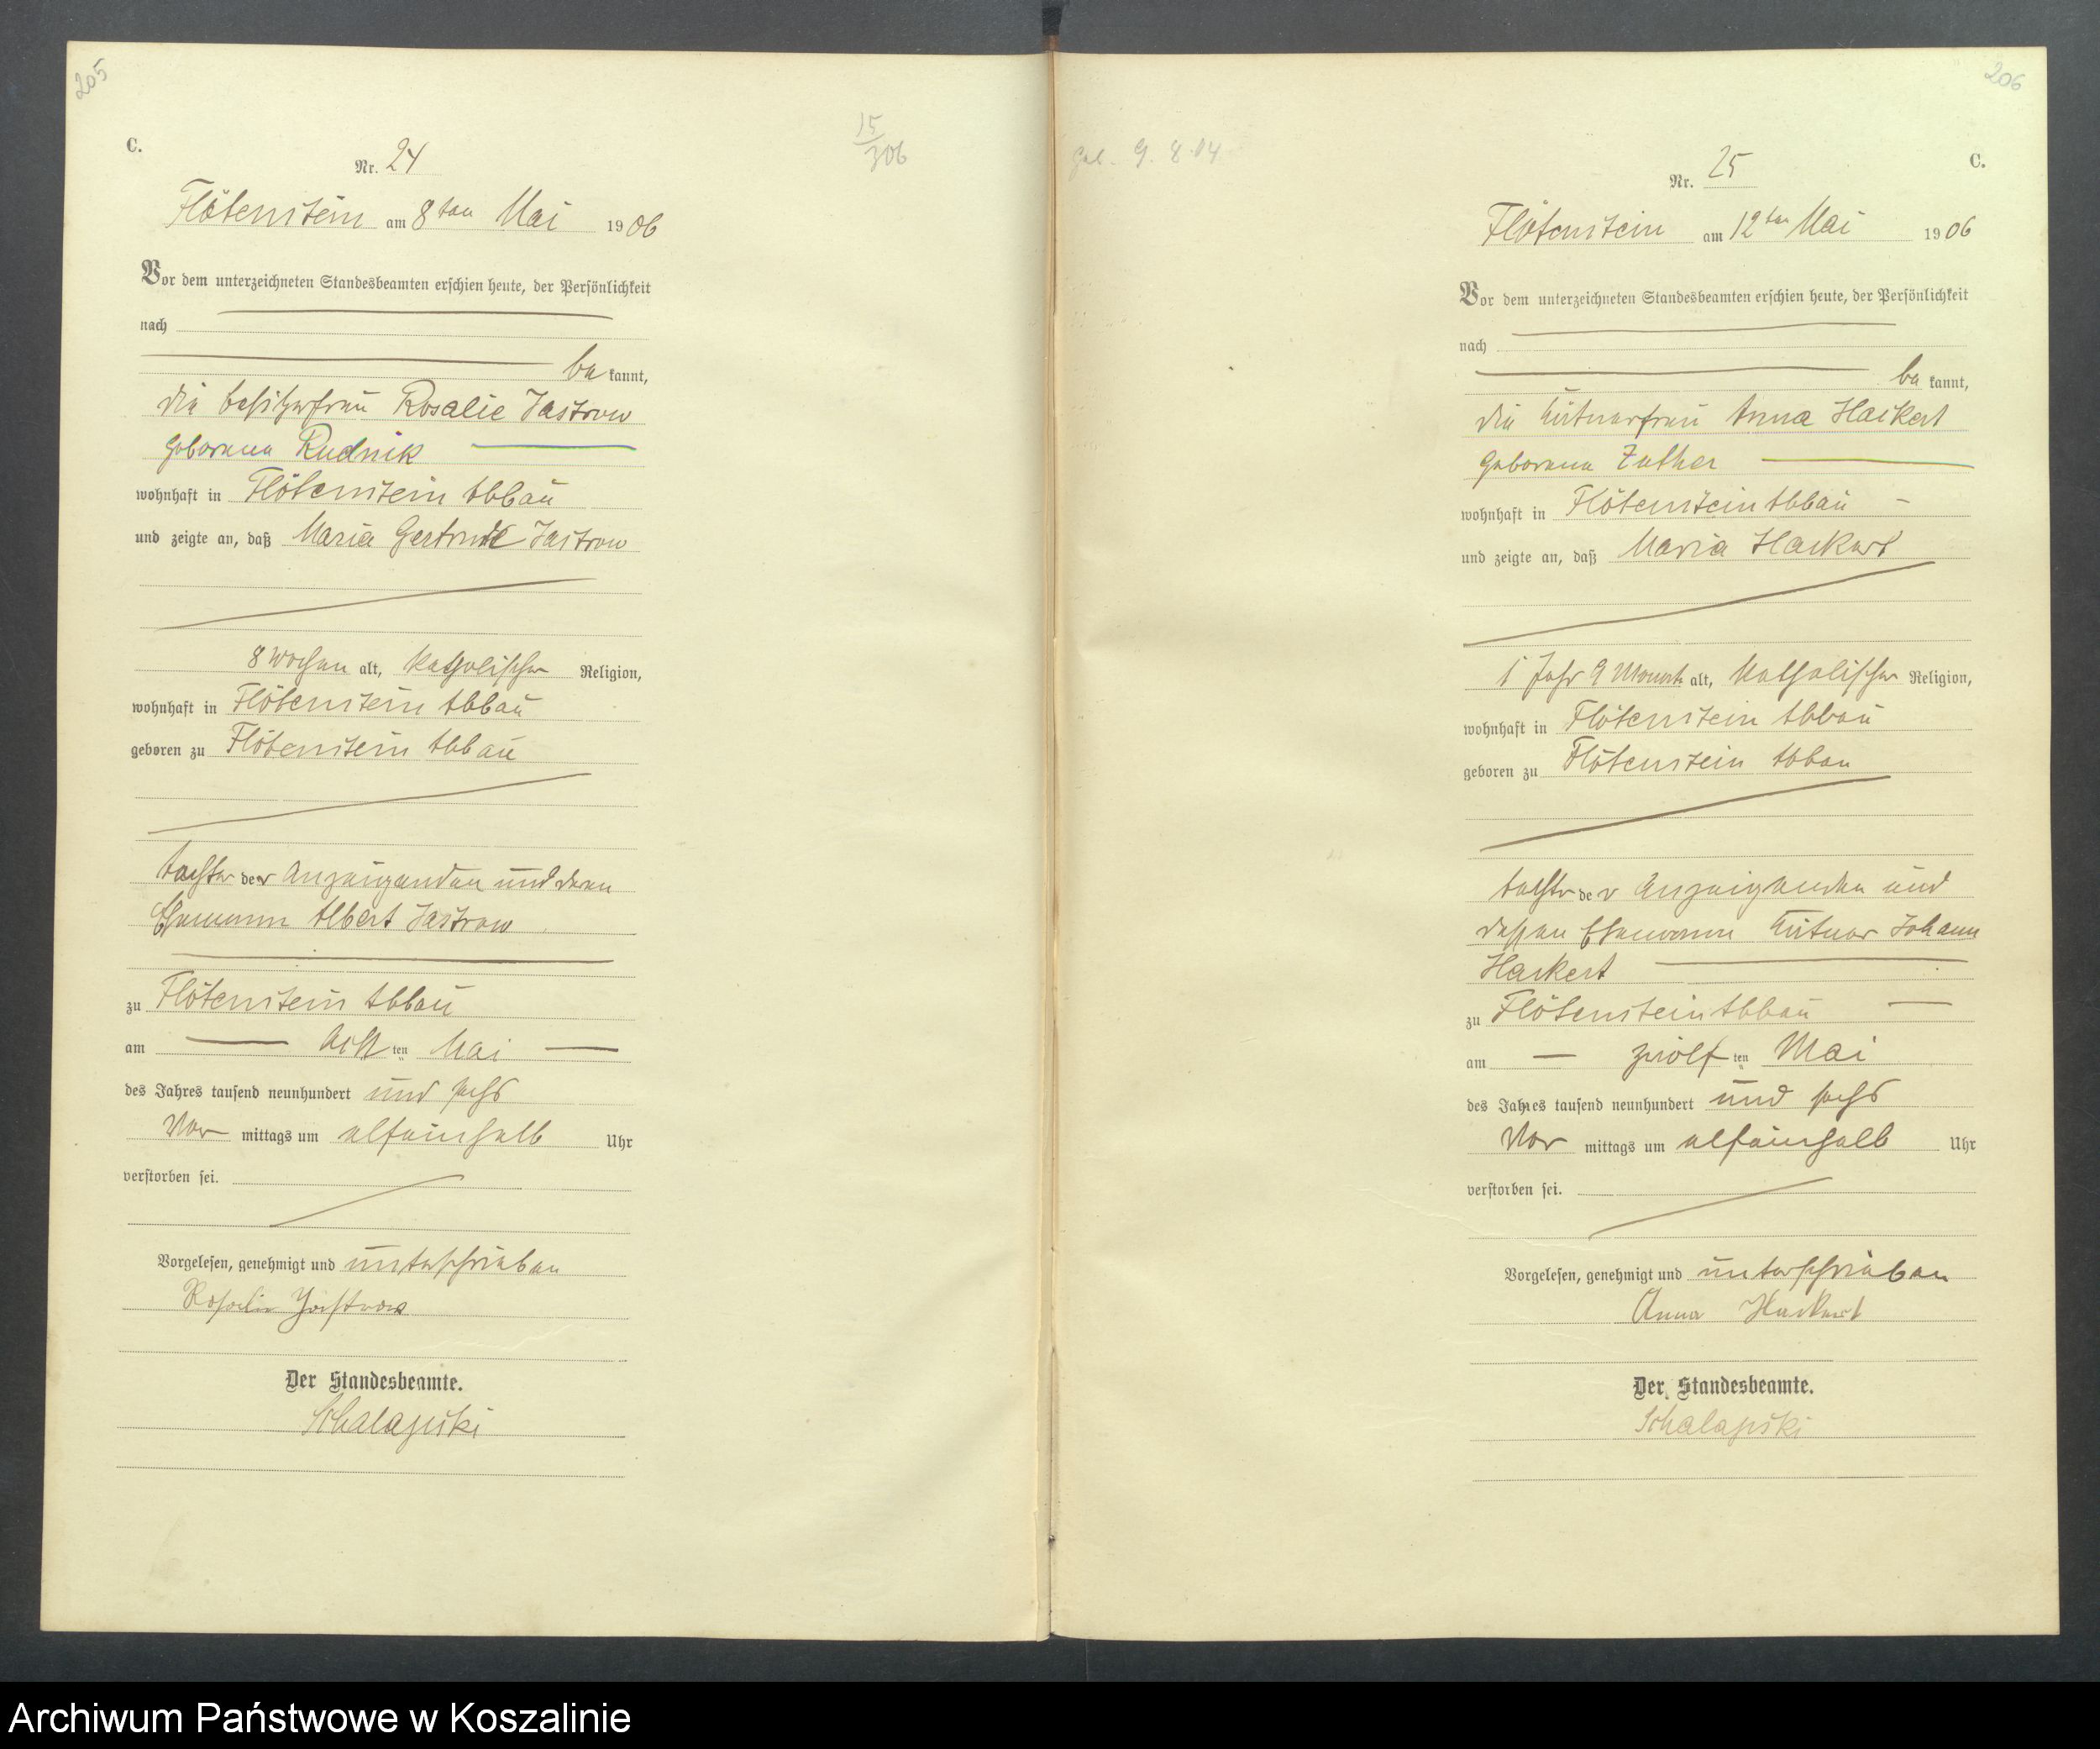 205
C.
15
306
Nr. 24
Flötenstein am 8ten Mai 1906
Vor dem unterzeichneten Standesbeamten erschien heute, der Persönlichkeit
nach
be kannt,
die Besitzerfrau Rosalie Jastrow
geborene Rudnik
wohnhaft in Flötenstein Abbau
und zeigte an, daß Maria Gertrude Jastrow
8 Wochen alt, katholischer Religion,
wohnhaft in Flötenstein Abbau
geboren zu Flötenstein Abbau
Tochter der Anzeigenden und deren
Ehemann Albert Jastrow
zu Flötenstein Abbau
am acht ten Mai
des Jahres tausend neunhundert und sechs
Vor mittags um elfeinhalb Uhr
verstorben sei.
Vorgelesen, genehmigt und unterschrieben
Rosalie Jastrow
Der Standesbeamte.
Schalapski
206
C.
Geb. 9. 8. 04
Nr. 25
Flötenstein am 12ten Mai 1906
Vor dem unterzeichneten Standesbeamten erschien heute, der Persönlichkeit
nach
be kannt,
die Kätnerfrau Anna Hackert
geborene Zuther
wohnhaft in Flötenstein Abbau
und zeigte an, daß Maria Hackert
1 Jahr 9 Monate alt, katholischer Religion,
wohnhaft in Flötenstein Abbau
geboren zu Flötenstein Abbau
Tochter der Anzeigenden und
dessen Ehemann Kätner Johann
Hackert
zu Flötenstein Abbau
am zwölf ten Mai
des Jahres tausend neunhundert und sechs
Vor mittags um elfeinhalb Uhr
verstorben sei.
Vorgelesen, genehmigt und unterschrieben
Anna Hackert
Der Standesbeamte.
Schalapski
Archiwum Państwowe w Koszalinie